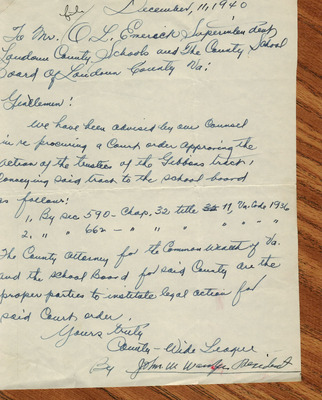 December, 11, 1940
To Mr. O. L. Emerick Superintendent
Loudoun County Schools and The County School
Board of Loudoun County Va:
Gentlemen:
We have been advised by our Counsel
in re procuring a Court order approving the
action of the trustees of the Gibbons tract,
conveying said tract to the school board
as follows:
1, By sec 590 - Chap. 32, title 11, Va. Code 1936
2, " " 662 - " " " " " "
The County Attorney for the Common Wealth of Va.
and the School Board for said County are the
proper parties to institute legal action for
said Court order.
Yours truly
County-Wide League
By John W. President